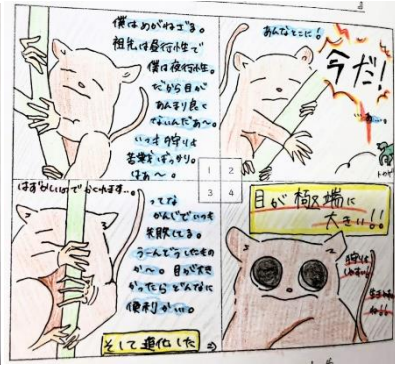 僕はめがねざる。
祖先は昼行性で
僕は夜行性。
だから目が
あんまり良く
ないんだあ〜。
いつも狩りは
はぁ〜。
あんなとこに!
今だ!
1 2
3 4
はずかしいのでかくれます…。
ってな
かんじでいつも
失敗してる。
うーんどうしたもの
か〜。目が大き
かったらどんなに
便利かぃ。
そして進化した
目が極端に
大きい!!
狩りは